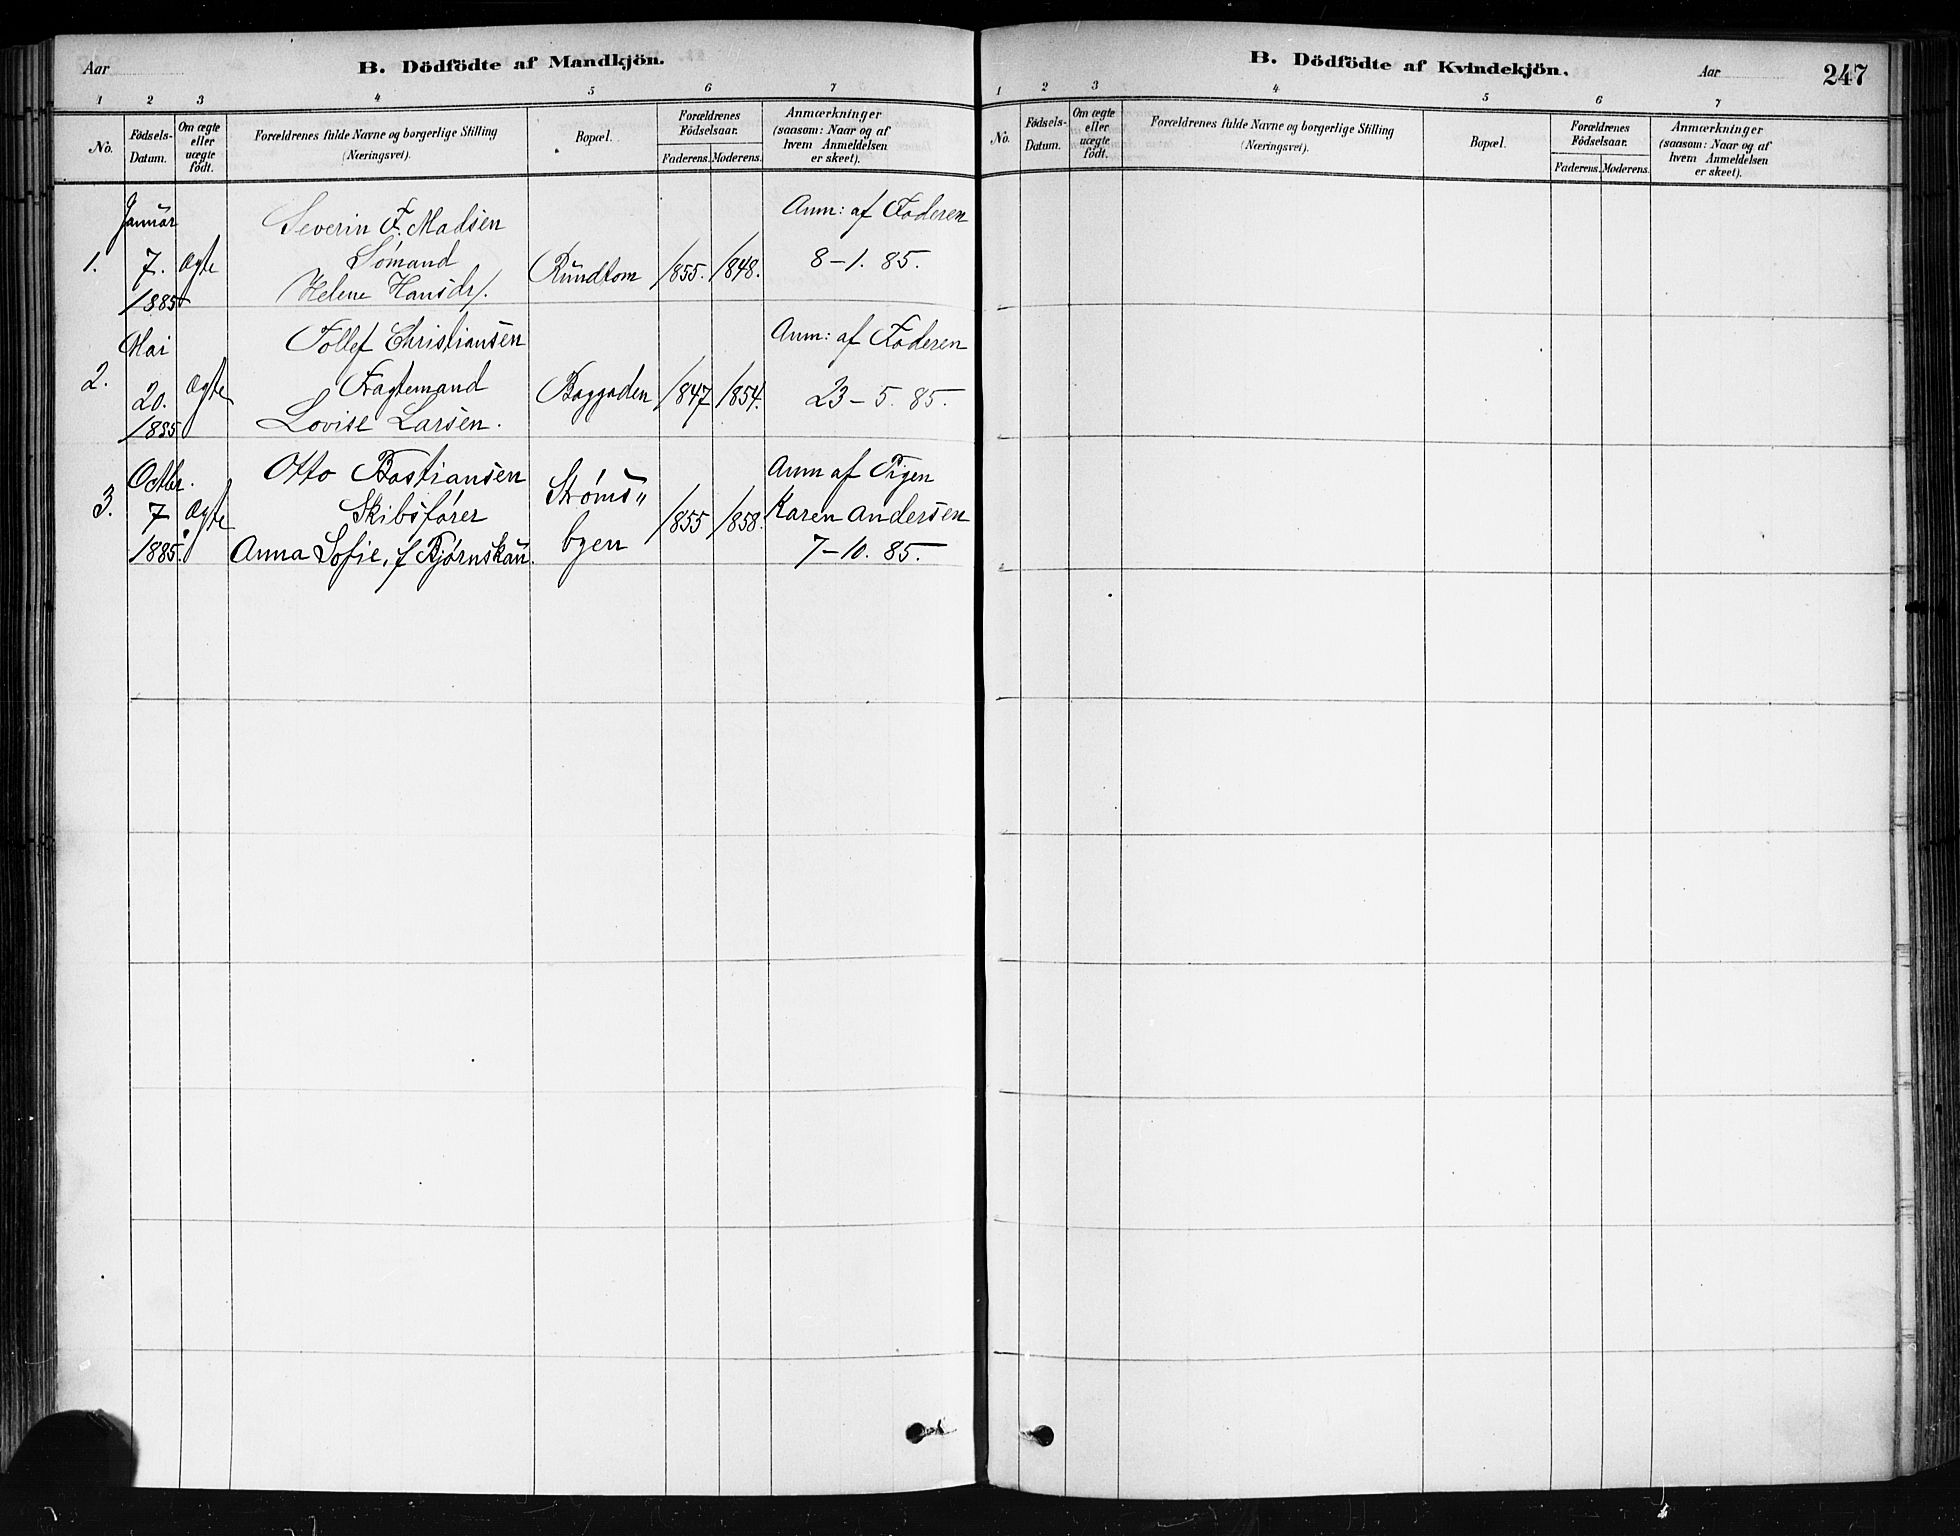 Aar
B. Dödfödte af Mandkjön.
1 2 3 4 5 6 7
No.
Födsels-
Datum.
Om ægte
eller
uægte
födt.
Forældrenes fulde Navne og borgerlige Stilling
(Næringsvei).
Bopæl.
Forældrenes
Födselsaar.
Faderens. Moderens.
Anmærkninger
(saasom: Naar og af
hvem Anmeldelsen
er skeet).
Januar
Severin F. Madsen
Anm: af Faderen
1. 7. Ægte
Sømand
Rundtom 1855. 1848.
8-1. 85.
1885
Helene Hansdr.
Mai
Tollef Christiansen
Anm: af Faderen
2. 20. Ægte
Fragtemand
Baggaden 1847 1854.
23-5. 85.
1885
Lovise Larsen.
Octbr.
Otto Bastiansen
Strøms„
Anm af Pigen
3. 7 Ægte
Skibsfører
1855 1858.
Karen Andersen
1885.
Anna Sofie, f Bjørnskau.
byen
7-10. 85.
B. Dödfödte af Kvindekjön.
Aar
247
1 2 3 4 5 6 7
No.
Födsels-
Datum.
Om ægte
eller
uægte
födt.
Forældrenes fulde Navne og borgerlige Stilling
(Næringsvei).
Bopæl.
Forældrenes
Födselsaar.
Faderens. Moderens.
Anmærkninger
(saasom: Naar og af
hvem Anmeldelsen
er skeet).